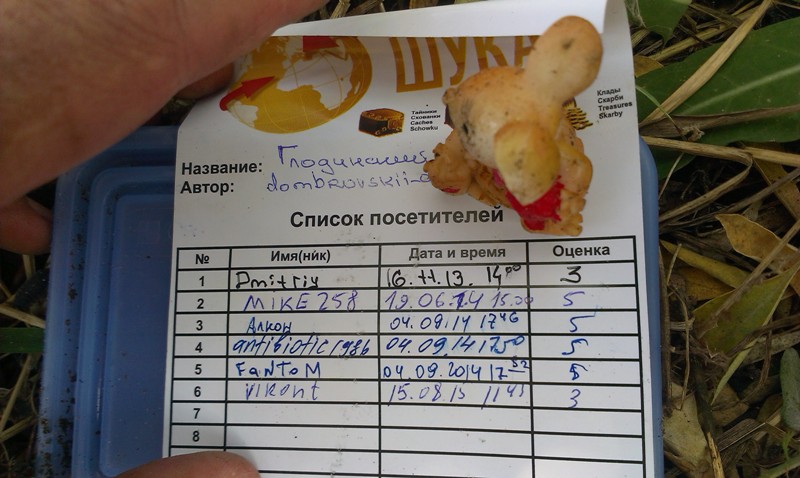 ШУКА
Тайники
Схованки
Caches
Schowku
Клады
Скарби
Treasures
Skarby
Название:
Автор: dombrovskii-
Список посетителей
№ Имя(ник) Дата и время Оценка
1 Dmitriy 16.11.13. 14⁰⁰ 3
2 MIKE258 19.06.14 15.00 5
3 Алкон 04.09.14 17⁴⁶ 5
4 antibiotic1986 04.09.14 1750 5
5 FaNtoM 04.09.2014 17⁵² 5
6 vikont 15.08.15 11⁴⁵ 3
7
8